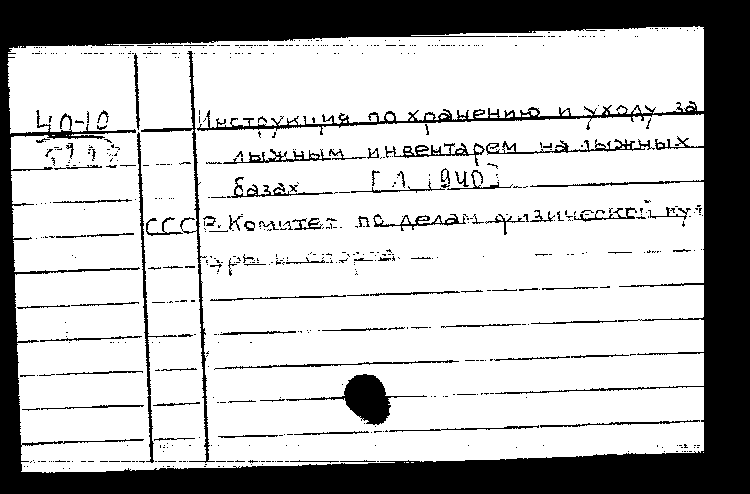 40-10 Инструкция по хранению и уходу за
5228 лыжным инвентарем на лыжных
базах [Л 1940]
СССР. Комитет по делам физической куль
туры и спорта